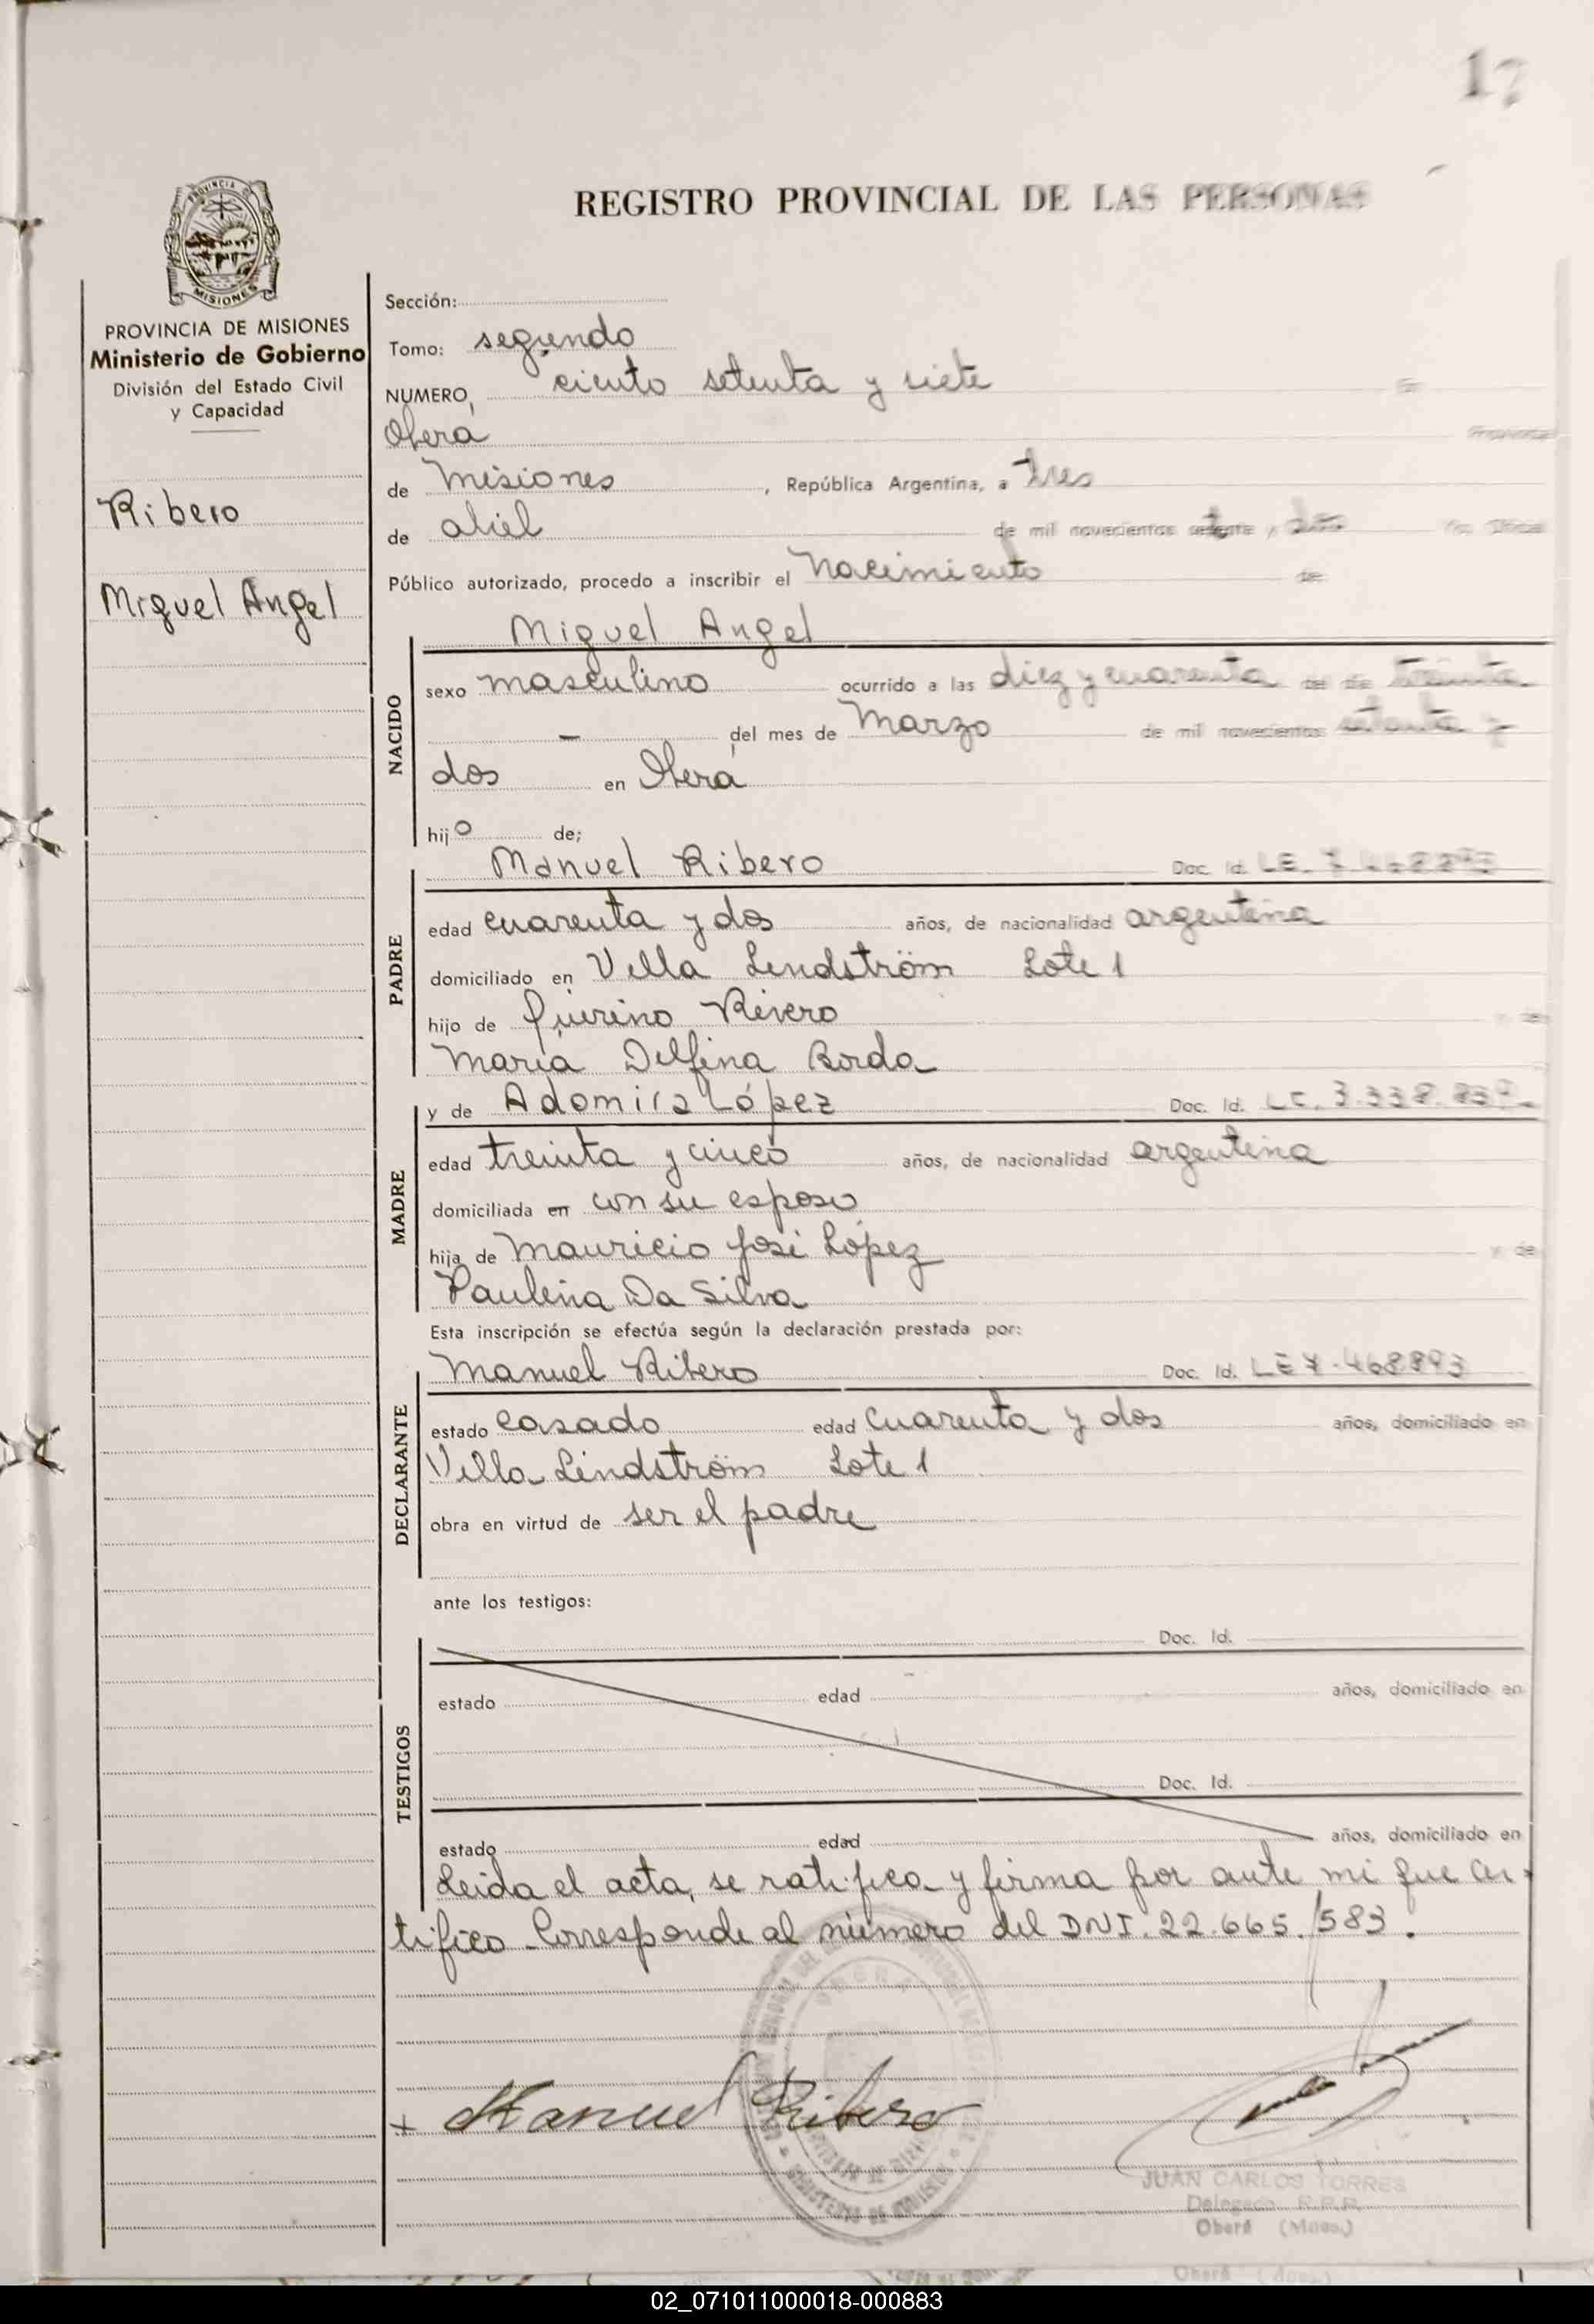 17
REGISTRO PROVINCIAL DE LAS PERSONAS
PROVINCIA DE MISIONES
MISIONES
PROVINCIA DE MISIONES
Ministerio de Gobierno
División del Estado Civil
y Capacidad
Ribero
Miguel Angel
Sección:
Tomo: segundo
NUMERO, ciento setenta y siete En
Oberá Provincia
de Misiones, República Argentina, a tres
de abril de mil novecientos setenta y dos Yo, Oficial
Público autorizado, procedo a inscribir el nacimiento de
NACIDO
Miguel Angel
sexo masculino ocurrido a las diez y cuarenta del día treinta
— del mes de Marzo de mil novecientos setenta y
dos en Oberá
hijo de;
PADRE
Manuel Ribero Doc. Id. LE. 7.468.893
edad cuarenta y dos años, de nacionalidad argentina
domiciliado en Villa Lindström Lote 1
hijo de Quirino Rivero y de
María Delfina Borda
MADRE
y de Adomira López Doc. Id. LC. 3.338.859
edad treinta y cinco años, de nacionalidad argentina
domiciliada en con su esposo
hija de Mauricio José López y de
Paulina Da Silva
Esta inscripción se efectúa según la declaración prestada por:
DECLARANTE
Manuel Ribero Doc. Id. LE 7.468893
estado casado edad cuarenta y dos años, domiciliado en
Villa Lindström Lote 1
obra en virtud de ser el padre
ante los testigos:
TESTIGOS
Doc. Id.
estado edad años, domiciliado en
Doc. Id.
estado edad años, domiciliado en
Leida el acta, se ratifica y firma por ante mi que cer-
tifico. Corresponde al número del DNI. 22.665.583.
+ Manuel Ribero
JUAN CARLOS TORRES
Delegado R.P.P.
Oberá (Mnes.)
02_071011000018-000883